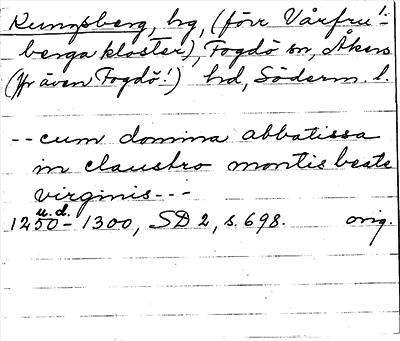 Kungsberg, hg, (förr Vårfru!-
berga kloster), Fogdö sn, Åkers
(Jfr även Fogdö!) hd, Söderm. l.
-- cum domina abbatissa
in claustro montis beate
virginis ---
u.d.
1250-1300, SD 2, s. 698. orig.